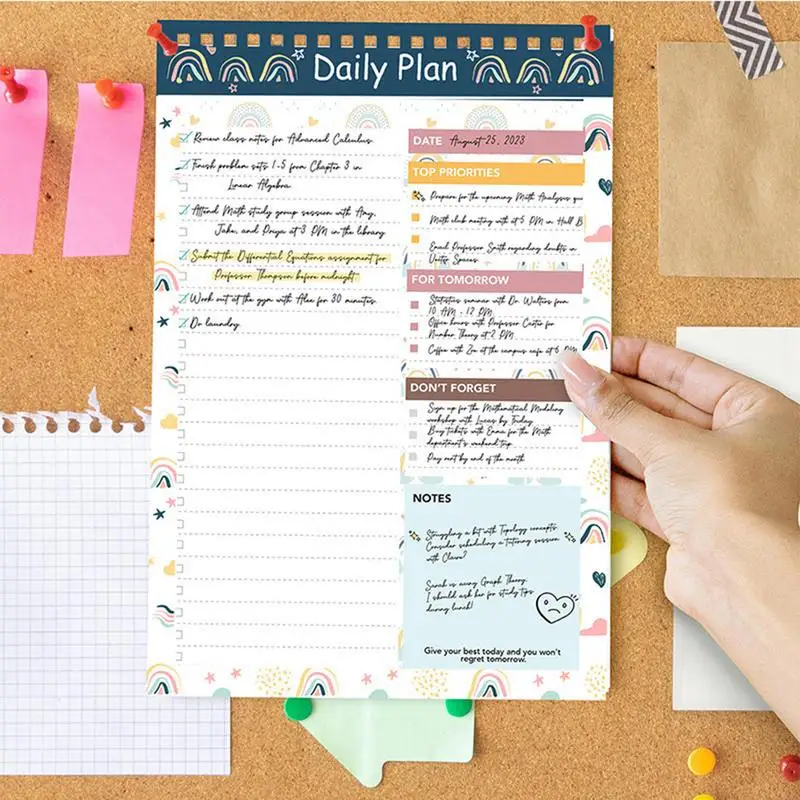 Daily Plan
Review class notes for Advanced Calculus.
Finish problem sets 1-5 from Chapter 3 in
Linear Algebra.
Attend Math study group session with Amy,
Jake, and Priya at 3 PM in the library.
Submit the Differential Equations assignment for
Professor Thompson before midnight.
Work out at the gym with Alex for 30 minutes.
Do laundry.
DATE August 25, 2023
TOP PRIORITIES
Prepare for the upcoming Math Analysis
Math club meeting with at 5 PM in Hall B
Email Professor Smith regarding doubts in
Vector Spaces
FOR TOMORROW
Statistics seminar with Dr. Walters from
10 AM - 12 PM
Office hours with Professor Carter for
Number Theory at 2 PM
Coffee with Zoe at the campus cafe at 6 PM
DON'T FORGET
Sign up for the Mathematical Modeling
workshop with Lucas by Friday
Buy tickets with Emma for the Math
department's weekend trip
Pay rent by end of the month
NOTES
Struggling a bit with Topology concepts.
Consider scheduling a tutoring session
with Claire?
Sarah is acing Graph Theory.
I should ask her for study tips
during lunch!
Give your best today and you won't
regret tomorrow.